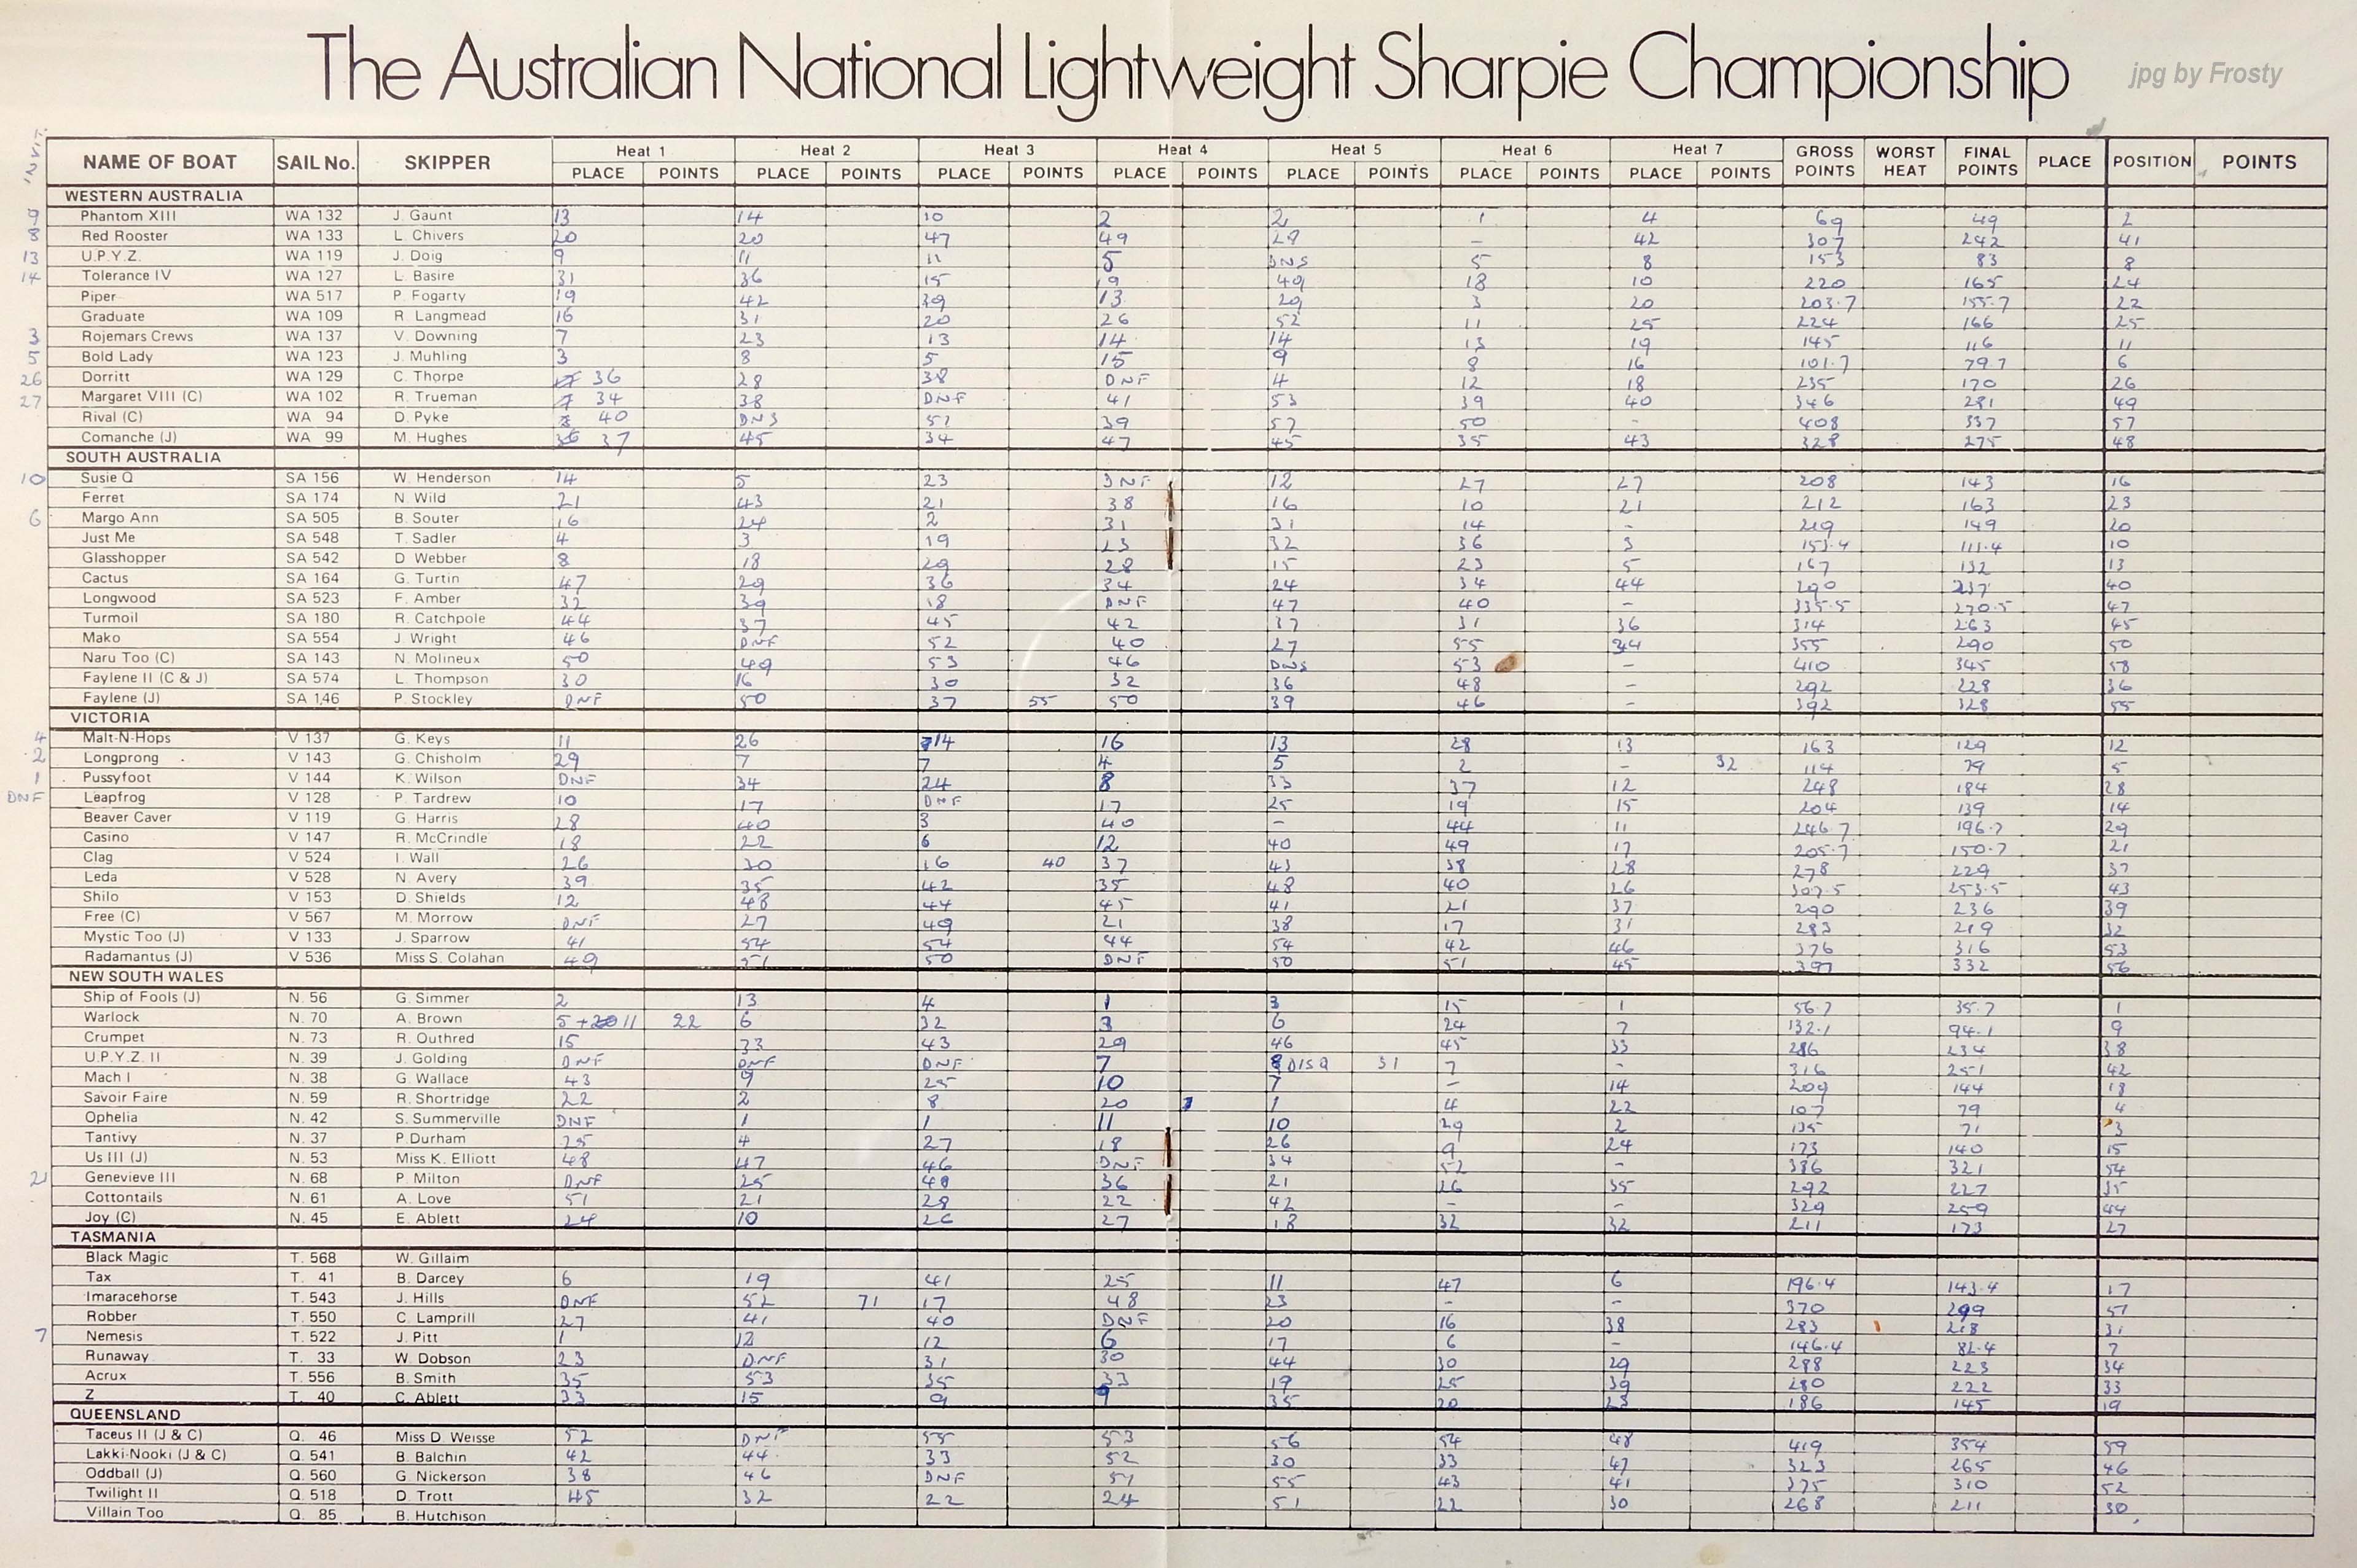 The Australian National Lightweight Sharpie Championship
jpg by Frosty
INVIT.
NAME OF BOAT SAIL No. SKIPPER Heat 1 Heat 2 Heat 3 Heat 4 Heat 5 Heat 6 Heat 7 GROSS POINTS WORST HEAT FINAL POINTS PLACE POSITION POINTS
PLACE POINTS PLACE POINTS PLACE POINTS PLACE POINTS PLACE POINTS PLACE POINTS PLACE POINTS
WESTERN AUSTRALIA
9 Phantom XIII WA 132 J. Gaunt 13 14 10 2 2 1 4 69 49 2
8 Red Rooster WA 133 L. Chivers 20 20 47 49 29 - 42 307 242 41
13 U.P.Y.Z. WA 119 J. Doig 9 11 11 5 DNS 5 8 153 83 8
14 Tolerance IV WA 127 L. Basire 31 36 15 19 49 18 10 220 165 24
Piper WA 517 P. Fogarty 19 42 39 13 29 3 20 203.7 155.7 22
Graduate WA 109 R. Langmead 16 31 20 26 52 11 25 224 166 25
3 Rojemars Crews WA 137 V. Downing 7 23 13 14 14 13 19 145 116 11
5 Bold Lady WA 123 J. Muhling 3 8 5 15 9 8 16 101.7 79.7 6
26 Dorritt WA 129 C. Thorpe 36 28 38 DNF 4 12 18 235 170 26
27 Margaret VIII (C) WA 102 R. Trueman 34 38 DNF 41 53 39 40 346 281 49
Rival (C) WA 94 D. Pyke 40 DNS 51 39 57 50 - 408 337 57
Comanche (J) WA 99 M. Hughes 37 45 34 47 45 35 43 328 275 48
SOUTH AUSTRALIA
10 Susie Q SA 156 W. Henderson 14 5 23 DNF 12 27 27 208 143 16
Ferret SA 174 N. Wild 21 43 21 38 16 10 21 212 163 23
6 Margo Ann SA 505 B. Souter 16 24 2 31 31 14 - 219 149 20
Just Me SA 548 T. Sadler 4 3 19 23 32 36 3 153.4 111.4 10
Glasshopper SA 542 D Webber 8 18 29 28 15 23 5 167 132 13
Cactus SA 164 G. Turtin 47 29 36 34 24 34 44 290 237 40
Longwood SA 523 F. Amber 32 39 18 DNF 47 40 - 335.5 270.5 47
Turmoil SA 180 R. Catchpole 44 37 45 42 37 31 36 314 263 45
Mako SA 554 J. Wright 46 DNF 52 40 27 55 34 355 290 50
Naru Too (C) SA 143 N. Molineux 50 49 53 46 DNS 53 - 410 345 58
Faylene II (C & J) SA 574 L. Thompson 30 16 30 32 36 48 - 292 228 36
Faylene (J) SA 146 P. Stockley DNF 50 37 55 50 39 46 - 392 328 55
VICTORIA
4 Malt-N-Hops V 137 G. Keys 11 26 14 16 13 28 13 163 129 12
2 Longprong V 143 G. Chisholm 29 7 7 4 5 2 - 32 114 79 5
1 Pussyfoot V 144 K. Wilson DNF 34 24 8 33 37 12 248 184 28
DNF Leapfrog V 128 P. Tardrew 10 17 DNF 17 25 19 15 204 139 14
Beaver Caver V 119 G. Harris 28 40 3 40 - 44 11 246.7 196.7 29
Casino V 147 R. McCrindle 18 22 6 12 40 49 17 205.7 150.7 21
Clag V 524 I. Wall 26 30 16 40 37 43 38 28 278 229 37
Leda V 528 N. Avery 39 35 42 35 48 40 26 307.5 253.5 43
Shilo V 153 D. Shields 12 48 44 45 41 21 37 290 236 39
Free (C) V 567 M. Morrow DNF 27 49 21 38 17 31 283 219 32
Mystic Too (J) V 133 J. Sparrow 41 54 54 44 54 42 46 376 316 53
Radamantus (J) V 536 Miss S. Colahan 49 51 50 DNF 50 51 45 397 332 56
NEW SOUTH WALES
Ship of Fools (J) N. 56 G. Simmer 2 13 4 1 3 15 1 56.7 35.7 1
Warlock N. 70 A. Brown 5 + 11 22 6 32 3 6 24 7 132.1 94.1 9
Crumpet N. 73 R. Outhred 15 33 43 29 46 45 33 286 234 38
U.P.Y.Z. II N. 39 J. Golding DNF DNF DNF 7 8 DISQ 31 7 - 316 251 42
Mach I N. 38 G. Wallace 43 9 25 10 7 - 14 209 144 18
Savoir Faire N. 59 R. Shortridge 22 2 8 20 1 4 22 107 79 4
Ophelia N. 42 S. Summerville DNF 1 1 11 10 29 2 135 71 3
Tantivy N. 37 P. Durham 25 4 27 18 26 9 24 173 140 15
Us III (J) N. 53 Miss K. Elliott 48 47 46 DNF 34 52 - 386 321 54
21 Genevieve III N. 68 P. Milton DNF 25 48 36 21 26 35 292 227 35
Cottontails N. 61 A. Love 51 21 28 22 42 - - 329 259 44
Joy (C) N. 45 E. Ablett 24 10 26 27 18 32 32 211 173 27
TASMANIA
Black Magic T. 568 W. Gillaim
Tax T. 41 B. Darcey 6 19 41 25 11 47 6 196.4 143.4 17
Imaracehorse T. 543 J. Hills DNF 52 71 17 48 23 - - 370 299 51
Robber T. 550 C. Lamprill 27 41 40 DNF 20 16 38 283 218 31
7 Nemesis T. 522 J. Pitt 1 12 12 6 17 6 - 146.4 82.4 7
Runaway T. 33 W. Dobson 23 DNF 31 30 44 30 29 288 223 34
Acrux T. 556 B. Smith 35 53 35 33 19 25 39 280 222 33
Z T. 40 C. Ablett 33 15 9 9 35 20 23 186 145 19
QUEENSLAND
Taceus II (J & C) Q. 46 Miss D. Weisse 52 DNF 55 53 56 54 48 419 354 59
Lakki-Nooki (J & C) Q. 541 B. Balchin 42 44 33 52 30 33 47 323 265 46
Oddball (J) Q. 560 G. Nickerson 38 46 DNF 51 55 43 41 375 310 52
Twilight II Q. 518 D. Trott 45 32 22 24 51 22 30 268 211 30
Villain Too Q. 85 B. Hutchison